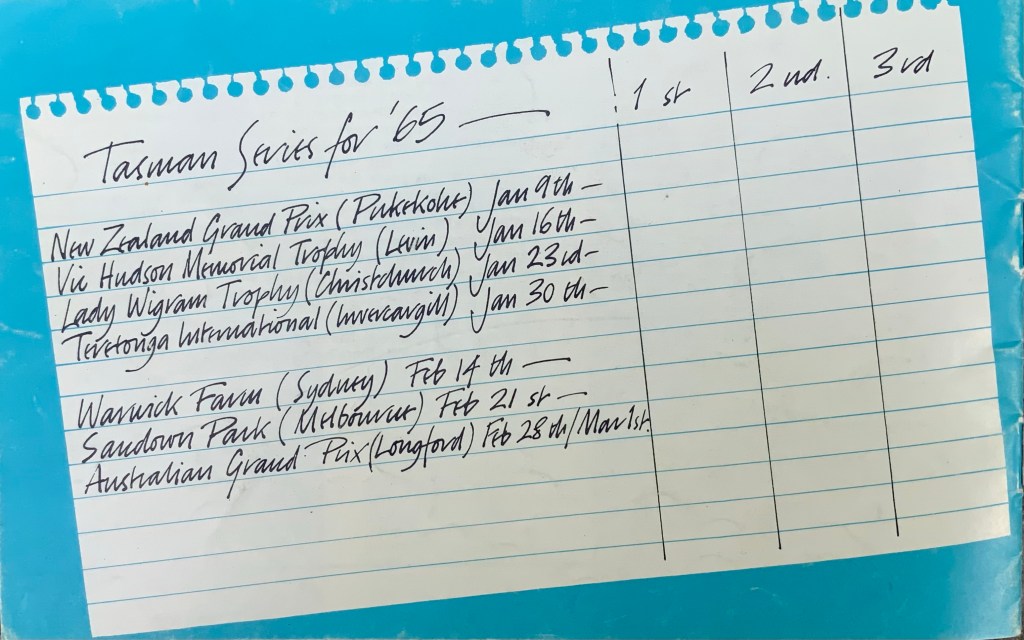 1st 2nd. 3rd
Tasman Series for '65 —
New Zealand Grand Prix (Pukekohe) Jan 9th –
Vic Hudson Memorial Trophy (Levin) Jan 16th –
Lady Wigram Trophy (Christchurch) Jan 23rd –
Teretonga International (Invercargill) Jan 30th –
Warwick Farm (Sydney) Feb 14th —
Sandown Park (Melbourne) Feb 21st —
Australian Grand Prix (Longford) Feb 28th/Mar 1st.